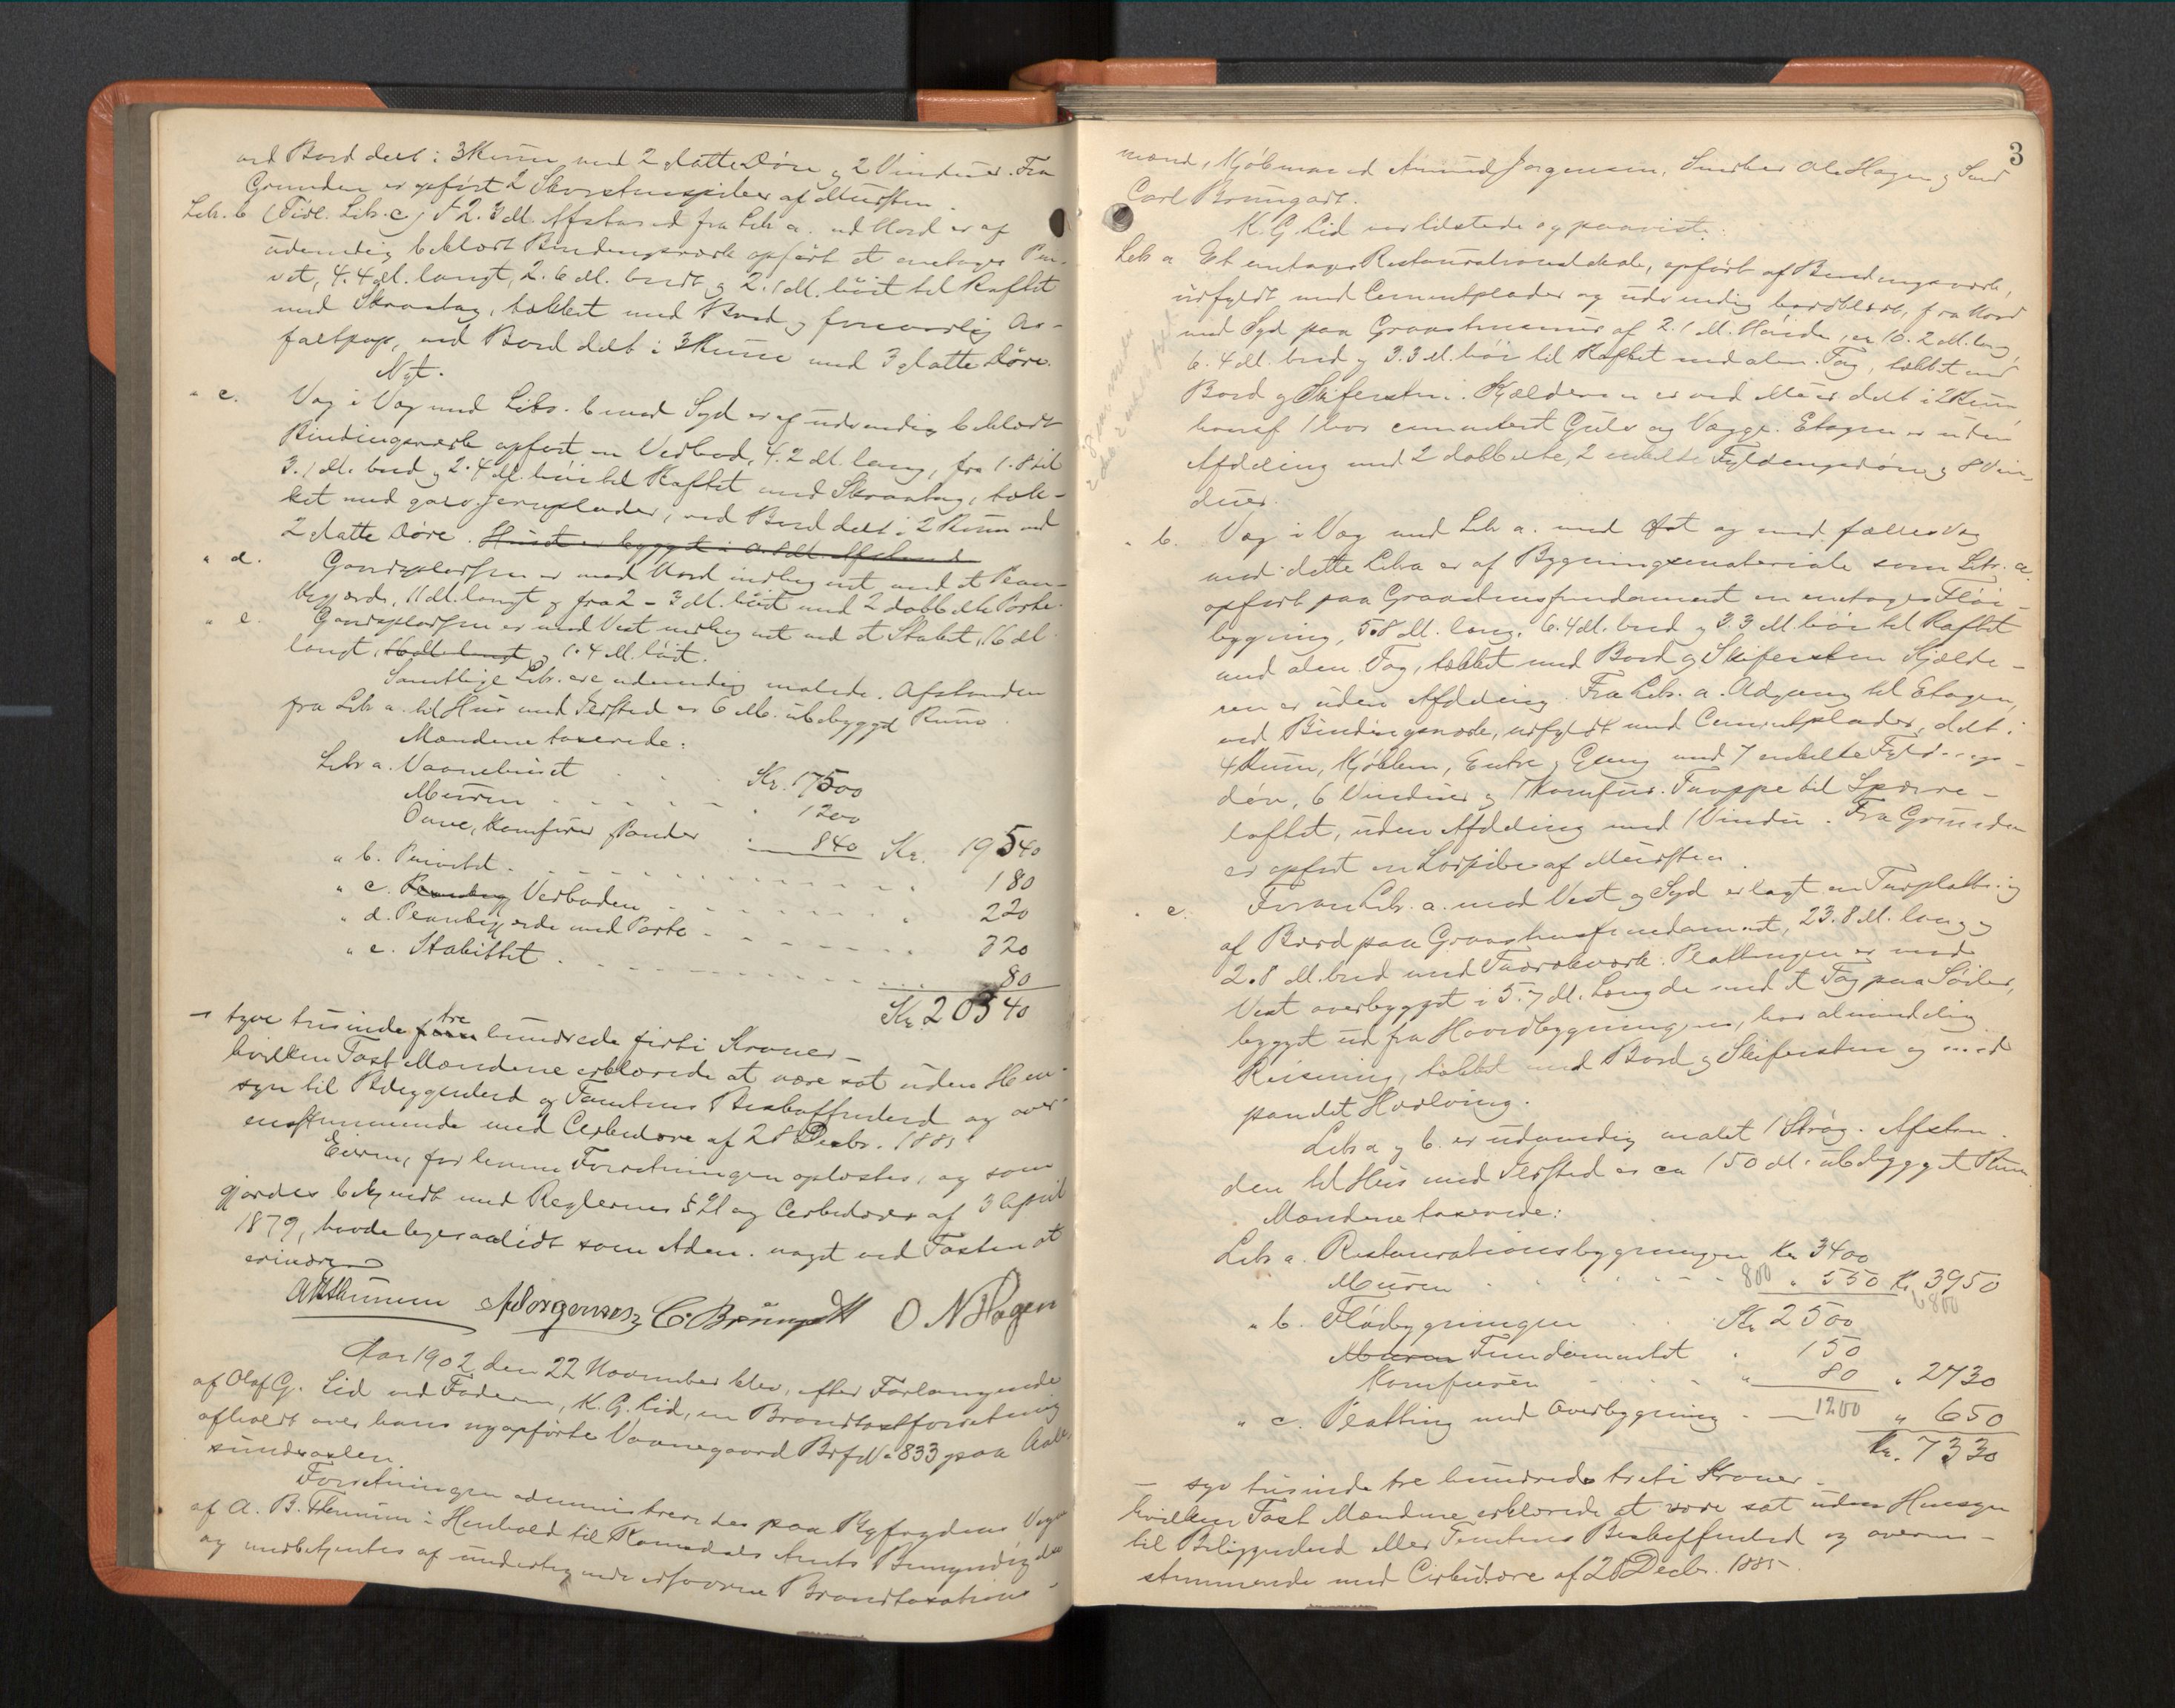 ved Bord delt i 3 Rum med 2 slatte Døre og 2 Vinduer. Fra
Grunden er opført 2 Skorstenspiber af Mursten.
Litr. b (Tidl. Litr. c) I 2.3 M. Afstand fra Litr a. mod Nord er af
udvendig beklædt Bindingsværk opført et enetages Pri-
vet, 4.4 M. langt, 2.6 M. bredt og 2.1 M. høit til Raftet
med Skraatag, tækket med Bord og forsvarlig As-
faltpap, ved Bord delt i 3 Rum med 3 slatte Døre.
Nyt.
" c. Væg i Væg med Litr. b mod Syd er af udvendig beklædt
Bindingsværk opført en Vedbod, 4.2 M. lang, fra 1.8 til
3.1 M. bred og 2.4 M. høi til Raftet med Skraatag, tæk-
ket med galv. Jernplader, ved Bord delt i 2 Rum med
2 slatte Døre. Huset er bygget i Afstand
" d. Gaardspladsen er mod Nord indhegnet med et Plan-
kegjerde, 11 M. langt og fra 2 - 3 M. høit med 2 dobbelte Porte.
" e. Gaardspladsen er mod Vest indhegnet med et Stakit, 16 M.
langt, 16 M. langt og 1.4 M. høit.
Samtlige Litr. ere udvendig malede. Afstanden
fra Litr a. til Hus med Ildsted er 6 M. ubebygget Rum.
Mændene taxerede:
Litr a. Vaanehuset Kr. 17500
Muren " 1200
Ovne, Komfurer, Pander " 840 Kr. 19540
" b. Privetet " 180
" c. Vedboden " 220
" d. Plankegjerde med Porte " 320
" e. Stakittet 80
Kr 20340
- tyve tusinde tre hundrede firti Kroner -
hvilken Taxt Mændene erklærede at være sat uden Hen-
syn til Beliggenhed og Tomtens Beskaffenhed og over-
ensstemmende med Cirkulære af 28 Decbr. 1885
Eieren, for hvem Forretningen oplæstes, og som
gjordes bekjendt med Reglernes § 21 og Cirkulære af 3 April
1879, havde ligesaalidt som Adm. noget ved Taxten at
erindre
A B Thumin A Jorgensen C. Brungodt O N Hagen
Aar 1902 den 22 November blev, efter Forlangende
af Olaf G. Lid ved Faderen, K. G. Lid, en Brandtaxtforretning
afholdt over hans nyopførte Vaanegaard Brfd No 833 paa Aale-
sundsaxlen.
Forretningen administreredes paa Byfogdens Vegne
af A. B. Thumin i Henhold til Romsdals Amts Bemyndigelse
og medbetjentes af undertegnede edsvorne Brandtaxations-
3
mænd, Kjøbmand Amund Jørgensen, Snedker Ole Hagen og Smed
Carl Brungodt.
K. G. Lid var tilstede og paaviste:
Litr a Et enetages Restaurationslokale, opført af Bindingsværk,
udfyldt med Cementplader og udvendig bordklædt, fra Nord
mod Syd paa Graastensmur af 2.1 M. Høide, er 10.2 M. lang,
6.4 M. bred og 3.3 M. høi til Raftet med alm. Tag, tækket med
Bord og Skifersten. Kjælderen er ved Mur delt i 2 Rum,
hvoraf 1 har cementeret Gulv og Vægge. Etagen er uden
Afdeling med 2 dobbelte, 2 enkelte Fyldingsdøre og 8 Vin-
duer.
" b. Væg i Væg med Litr a. mod Øst og med fælles Væg
med dette Litra er af Bygningsmateriale som Litr. a.
opført paa Graastensfundament en enetages Fløi-
bygning, 5.8 M. lang, 6.4 M. bred og 3.3 M. høi til Raftet
med alm. Tag, tækket med Bord og Skifersten. Kjælde-
ren er uden Afdeling. Fra Litr. a. Adgang til Etagen,
ved Bindingsværk, udfyldt med Cementplader, delt i
4 Rum, Kjøkken, Entre og Gang med 7 enkelte Fyldings-
døre, 6 Vinduer og 1 Komfur. Trappe til Sperre-
loftet, uden Afdeling med 1 Vindu. Fra Grunden
er opført en Lodpibe af Mursten.
" c. Foran Litr. a. mod Vest og Syd er lagt en Træplatting
af Bord paa Graastensfundament, 23.8 M. lang og
2.8 M. bred med Trærækværk. Plattingen er mod
Vest overbygget i 5.7 M. Længde med et Tag paa Søiler,
bygget ud fra Hovedbygningen, har almindelig
Reisning, tækket med Bord og Skifersten og med
pandet Hvælving.
Litr a og b. er udvendig malet 1 Strøg. Afstan-
den til Hus med Ildsted er ca 150 M. ubebygget Rum
Mændene taxerede:
Litr a. Restaurationsbygningen Kr 3400
Muren 800 " 550 Kr 3950
6800
" b. Fløibygningen Kr 2500
Muren Fundamentet " 150
Komfuren " 80 " 2730
" c. Platting med Overbygning 1200 " 650
Kr. 7330
- syv tusinde tre hundrede treti Kroner -
hvilken Taxt Mændene erklærede at være sat uden Hensyn
til Beliggenhed eller Tomtens Beskaffenhed og overens-
stemmende med Cirkulære af 28 Decbr. 1885.